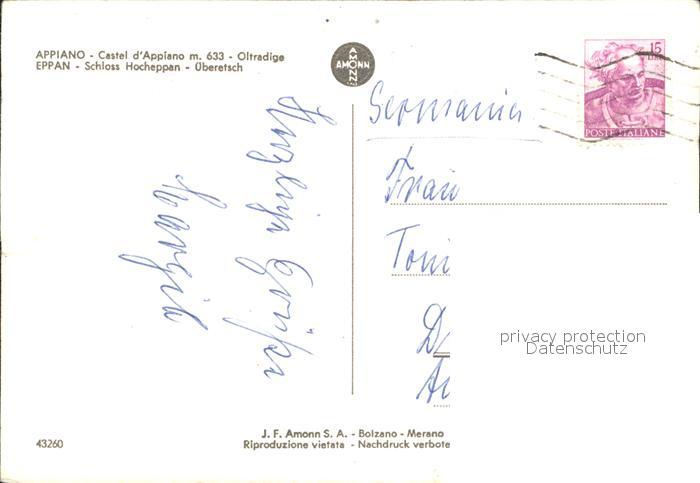 APPIANO - Castel d'Appiano m. 633 - Oltradige
EPPAN - Schloss Hocheppan - Überetsch
AMONN
AMONN
15
LIRE
POSTE ITALIANE
Germania
Frau
Toni
D
A
Herzliche Grüße
Margit
privacy protection
Datenschutz
43260
J. F. Amonn S. A. - Bolzano - Merano
Riproduzione vietata - Nachdruck verbote